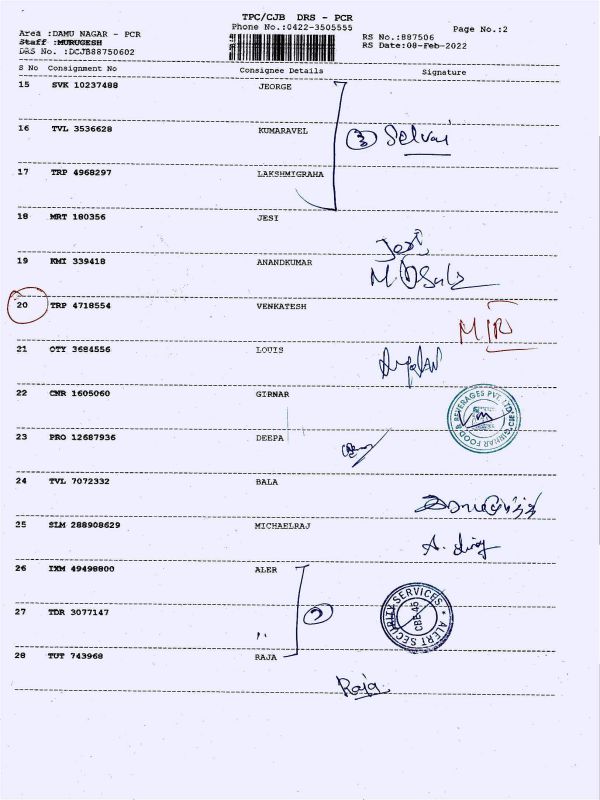 TPC/CJB DRS - PCR
Phone No.:0422-3505555
Page No.:2
Area :DAMU NAGAR - PCR
Staff :MURUGESH
DRS No. :DCJB88750602
RS No.:887506
RS Date:08-Feb-2022
S No Consignment No Consignee Details Signature
15 SVK 10237488 JEORGE
16 TVL 3536628 KUMARAVEL
3 Selvai
17 TRP 4968297 LAKSHMIGRAHA
18 MRT 180356 JESI
Jesi
19 KMI 339418 ANANDKUMAR
20 TRP 4718554 VENKATESH
M/R
21 OTY 3684556 LOUIS
22 CNR 1605060 GIRNAR
GIRNAR FOOD & BEVERAGES PVT. LTD.
23 PRO 12687936 DEEPA
24 TVL 7072332 BALA
25 SLM 288908629 MICHAELRAJ
26 IXM 49498800 ALER
27 TDR 3077147 "
ALERT SECURITY SERVICES
CBE-45
28 TUT 743968 RAJA
Raja